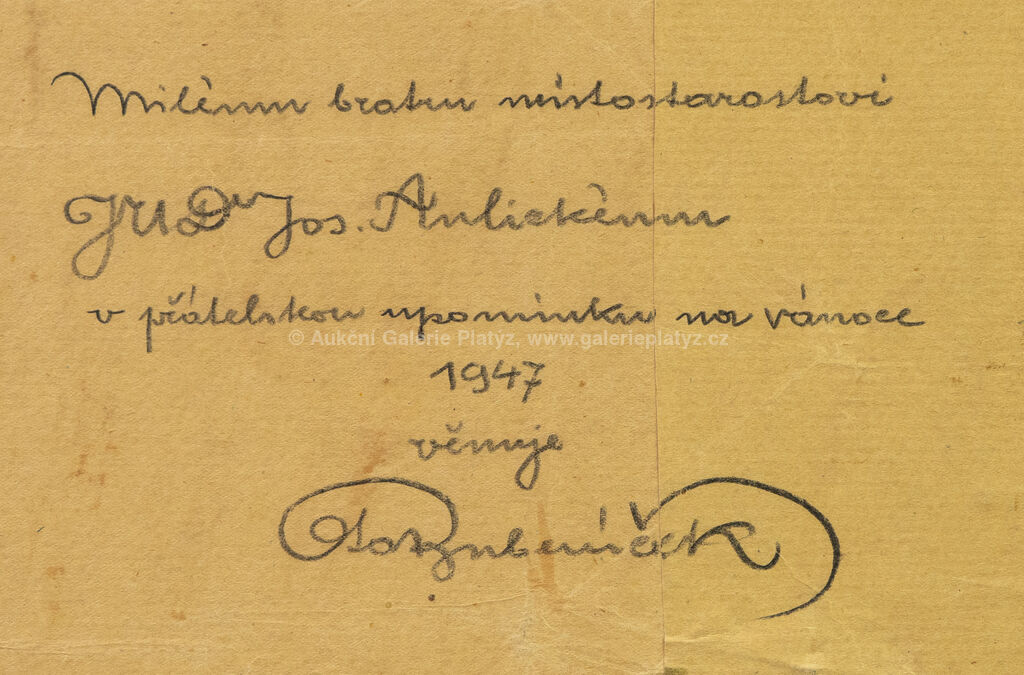 Milému bratru místostarostovi
JUDr Jos. Aulickému
v přátelskou upomínku na vánoce
© Aukční Galerie Platýz, www.galerieplatyz.cz
1947
věnuje